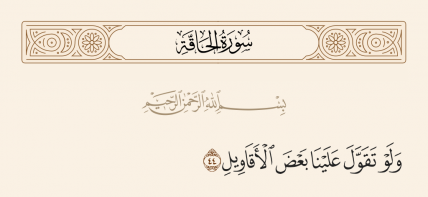 سُورَةُ الحَاقَّةِ
بِسْمِ اللَّهِ الرَّحْمَٰنِ الرَّحِيمِ
وَلَوْ تَقَوَّلَ عَلَيْنَا بَعْضَ ٱلْأَقَاوِيلِ ٤٤